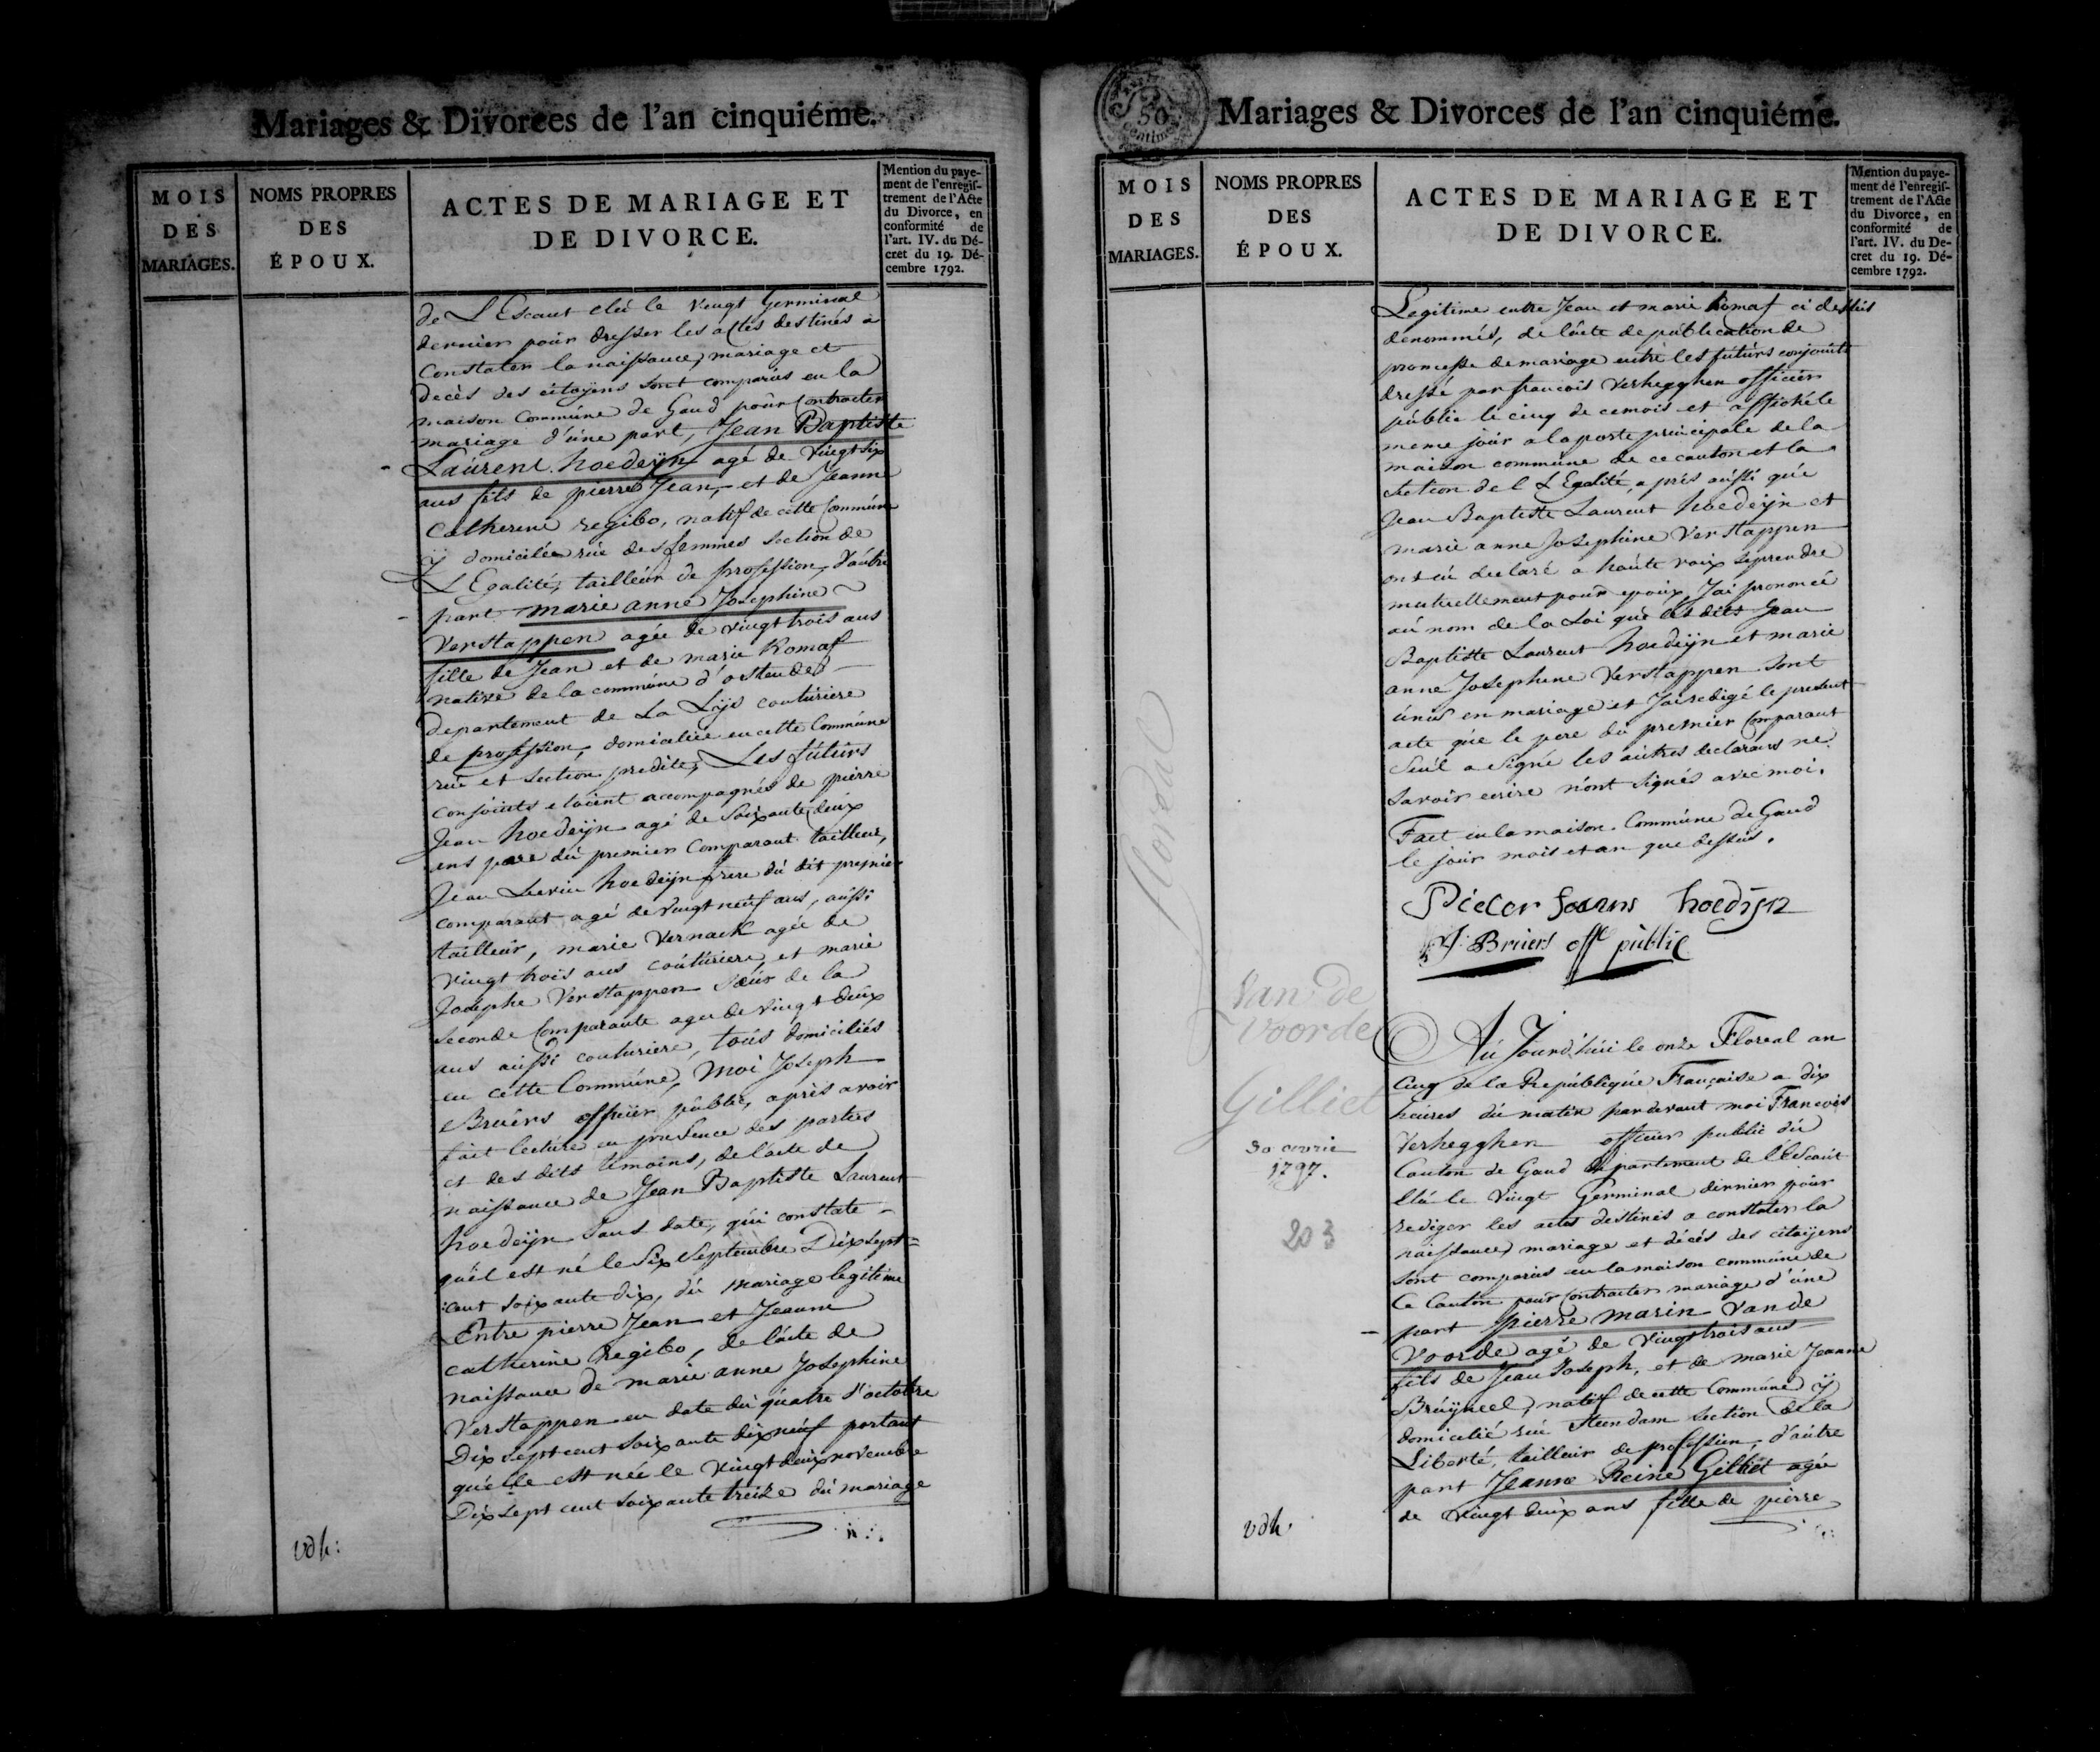 Mariages & Divorces de l'an cinquiéme.
MOIS
DES
MARIAGES.
NOMS PROPRES
DES
ÉPOUX.
ACTES DE MARIAGE ET
DE DIVORCE.
Mention du paye-
ment de l'enregis-
trement de l'Acte
du Divorce, en
conformité de
l'art. IV. du Dé-
cret du 19. Dé-
cembre 1792.
de L'Escaut elú le vingt Germinal
dernier pour dresser les actes destinés à
Constater la naissance, mariage et
decès des citoÿens sont comparús en la
maison Commúne de Gand pour Contracter
mariage d'úne part, Jean Baptiste
Laúrent hoedeÿn agé de vingt six
ans fils de pierre Jean, et de Jeanne
Catherine regibo, natif de cette Commúne
ÿ domiciliée rúe des femmes section de
L'Egalité, tailleúr de profession, d'aútre
part marie anne Josephine
Verstappen agée de vingt trois ans
fille de Jean et de marie Komaf
native de la commúne d'ostende
departement de La Lÿs coutúriere
de profession, domiciliée en cette Commúne
rúe et section predite, Les fútúrs
conjoints etoient accompagnés de pierre
Jean hoedeÿn agé de soixante deúx
ans pere dú premier Comparant tailleur,
Jean Lievin hoedeÿn frere dú dit premier
comparant agé de vingt neúf ans, aússi
tailleúr, marie Vernaek agée de
vingt trois ans coútúriere, et marie
Josephe Verstappen sœúr de la
seconde Comparante agée de vingt deúx
ans aússi couturiere, toús domiciliés
en cette Commúne, Moi Joseph
Brúers officier públic, après avoir
fait lectúre en presence des parties
et des dits témoins, de l'acte de
naissance de Jean Baptiste Laurent
hoedeÿn sans date, qúi constate
qúel est né le six Septembre Dix sept
cent soixante dix, dú mariage legitime
Entre pierre Jean et Jeanne
catherine Regibo, de l'acte de
naissance de marie anne Josephine
Verstappen en date dú qúatre d'octobre
Dix sept cent soixante dix neúf portant
qú'elle est née le vingt deúx novembre
Dix sept cent soixante treize dú mariage
vdh:
Mariages & Divorces de l'an cinquiéme.
MOIS
DES
MARIAGES.
NOMS PROPRES
DES
ÉPOUX.
ACTES DE MARIAGE ET
DE DIVORCE.
Mention du paye-
ment de l'enregis-
trement de l'Acte
du Divorce, en
conformité de
l'art. IV. du De-
cret du 19. Dé-
cembre 1792.
Legitime entre Jean et marie Komaf ci dessús
denommés, de l'acte de públication de
promesse de mariage entre les fútúrs conjoints
dressé par francois Verhegghen officier
públic le cinq de ce mois et affiché le
meme joúr a la porte principale de la
maison commúne de ce canton et la
Section de L'Egalité, aprés aússi qúe
Jean Baptiste Laurent hoedeÿn et
marie anne Josephine Verstappen
ont eú declaré a haúte voix se prendre
mutuellement poúr epoúx, J'ai prononcé
aú nom de la Loi qúe les dits Jean
Baptiste Laurent hoedeÿn et marie
anne Josephine Verstappen sont
únis en mariage et J'ai redigé le present
acte qúe le pere dú premier Comparant
seúl a signé les aútres declarans ne
savoir ecrire n'ont signés avec moi.
Fait en la maison Commúne de Gand
le joúr mois et an que dessús.
Pieter hoedÿn
J: Bruers offe públic
floreal
Van de
Voorde
Gilliet
30 avril
1797.
203
Aújourd'húi le onze Floreal an
Cinq de la Répúbliqúe Française a dix
heures dú matin par devant moi François
Verhegghen officier public dú
Canton de Gand departement de l'Escaút
Elú le vingt Germinal dernier poúr
rediger les actes destinés a constater la
naissance, mariage et décés des citoÿens
sont comparús en la maison commúne de
Ce Canton poúr Contracter mariage d'úne
part pierre marin Van de
Voorde agé de vingt trois ans
fils de Jean Joseph, et de marie Jeanne
Brúÿneel, natif de cette Commúne ÿ
domicilié rúe steendam section de la
Liberté, tailleúr de profession, d'aútre
part Jeanne Reine Gilliet agée
de vingt deúx ans fille de pierre
vdh